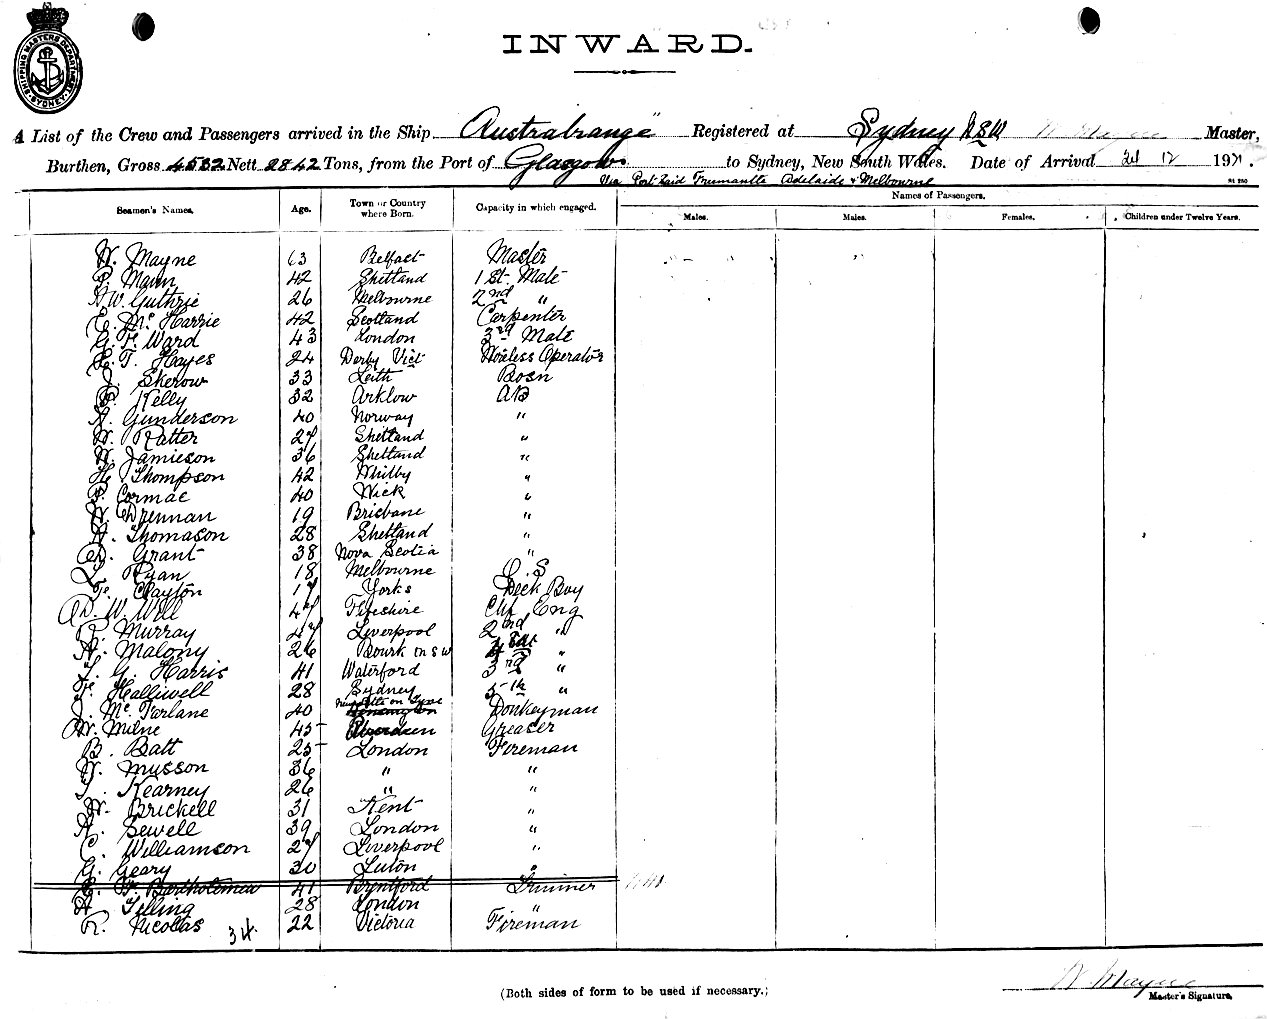 SHIPPING MASTERS DEPARTMENT SYDNEY
INWARD.
A List of the Crew and Passengers arrived in the Ship "Australrange" Registered at Sydney NSW W Mayne Master,
Burthen, Gross 4532 Nett 2842 Tons, from the Port of Glasgow to Sydney, New South Wales. Date of Arrival 12 1921.
Via Port Said Fremantle Adelaide & Melbourne
Seamen's Names. Age. Town or Country where Born. Capacity in which engaged. Names of Passengers.
Males. Males. Females. Children under Twelve Years.
W. Mayne 63 Belfast Master
P. Mann 42 Shetland 1st Mate
W. Guthrie 26 Melbourne 2nd "
McHarrie 42 Scotland Carpenter
G. F. Ward 43 London 3rd Mate
T. Hayes 24 Derby Vict Wireless Operator
J. Skerow 33 Leith Bosn
Kelly 32 Arklow AB
Gunderson 40 Norway "
W. Ratter 27 Shetland "
W. Jamieson 36 Shetland "
H. Thompson 42 Whitby "
P. Cormac 40 Wick "
W. Drennan 19 Brisbane "
Thomason 28 Shetland "
D. Grant 38 Nova Scotia "
L. Ryan 18 Melbourne O.S
F. Clayton 17 Yorks Deck Boy
D. W. Will 47 Fifeshire Chf Eng
R. Murray 47 Liverpool 2nd "
A. Malony 26 Bourk NSW "
G. Harris 41 Waterford 3rd "
F. Halliwell 28 Sydney 5th "
J. McFarlane 40 Newcastle on Tyne Donkeyman
W. Milne 45 Aberdeen Greaser
B. Batt 25 London Fireman
W. Musson 36 " "
Kearney 26 " "
W. Brickell 31 Kent "
A. Sewell 39 London "
C. Williamson 27 Liverpool "
G. Geary 30 Luton "
F. Bartholomew 41 Brentford Trimmer
A. Tilling 28 London "
R. Nicolas 22 Victoria Fireman
34
(Both sides of form to be used if necessary.)
W Mayne
Master's Signature.